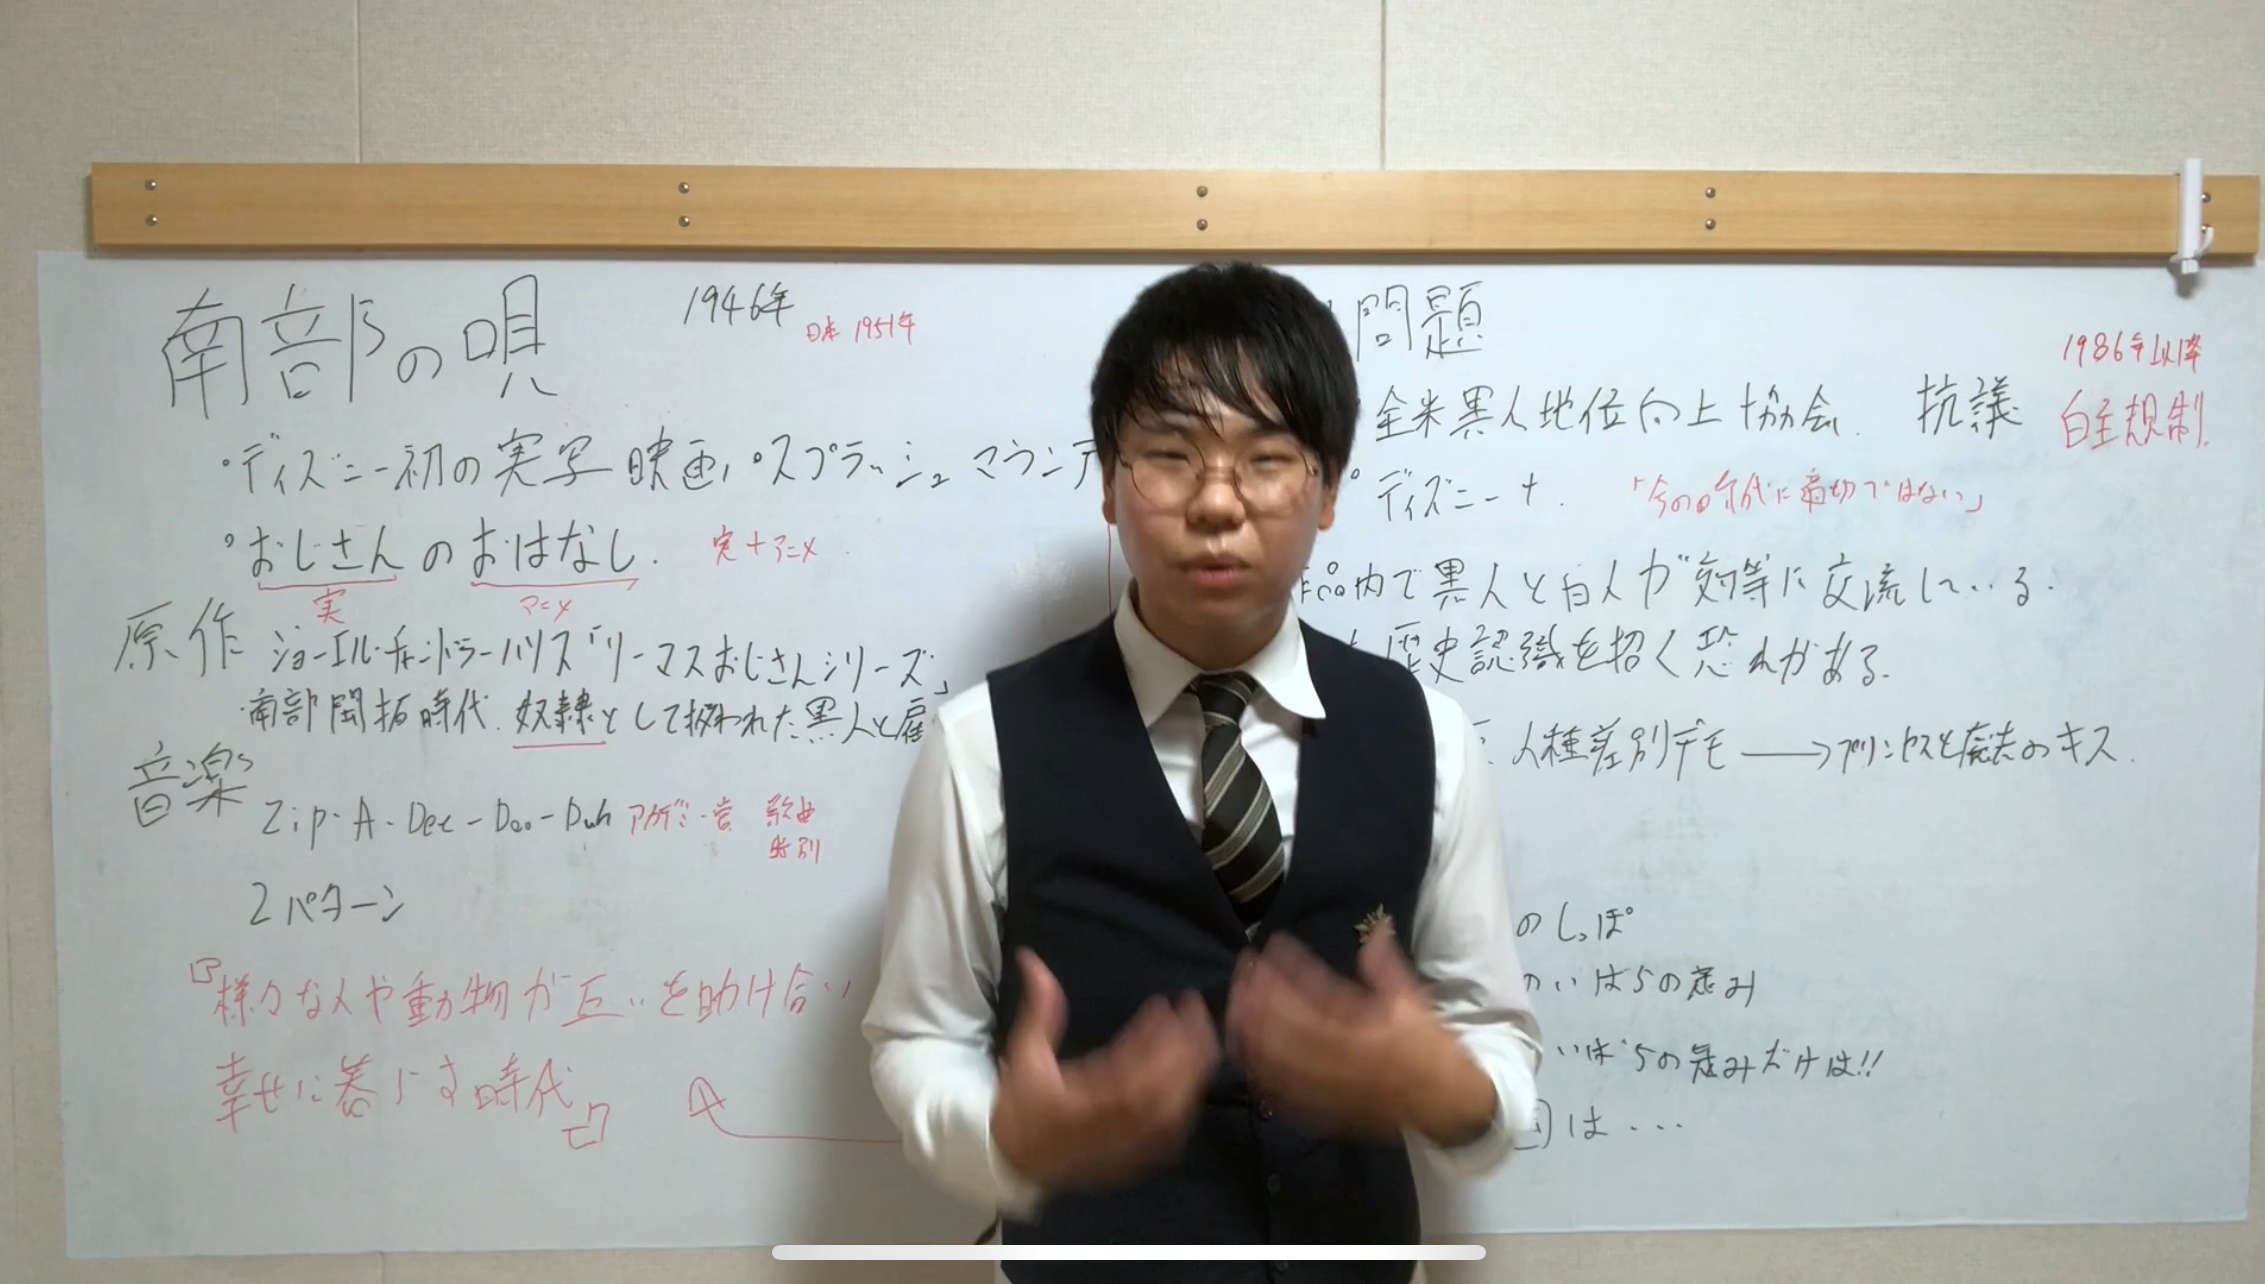 南部の唄 1946年
日本 1951年
・ディズニー初の実写映画,・スプラッシュマウンテ
・おじさんのおはなし. 実+アニメ
実 アニメ
原作 ジョーエル・チャンドラーハリス「リーマスおじさんシリーズ」
・南部開拓時代.奴隷として扱われた黒人と雇
音楽 Zip-A-Dee-Doo-Duh アカデミー賞 歌曲
特別
2パターン
『様々な人や動物が互いを助け合い
幸せに暮らす時代』
問題
1986年以降
全米黒人地位向上協会. 抗議 自主規制.
・ディズニー+. 「今の時代に適切ではない」
作品内で黒人と白人が対等に交流している.
歴史認識を招く恐れがある.
人種差別デモ→プリンセスと魔法のキス.
のしっぽ
のいばらの茂み
いばらの茂みだけは!!
は...